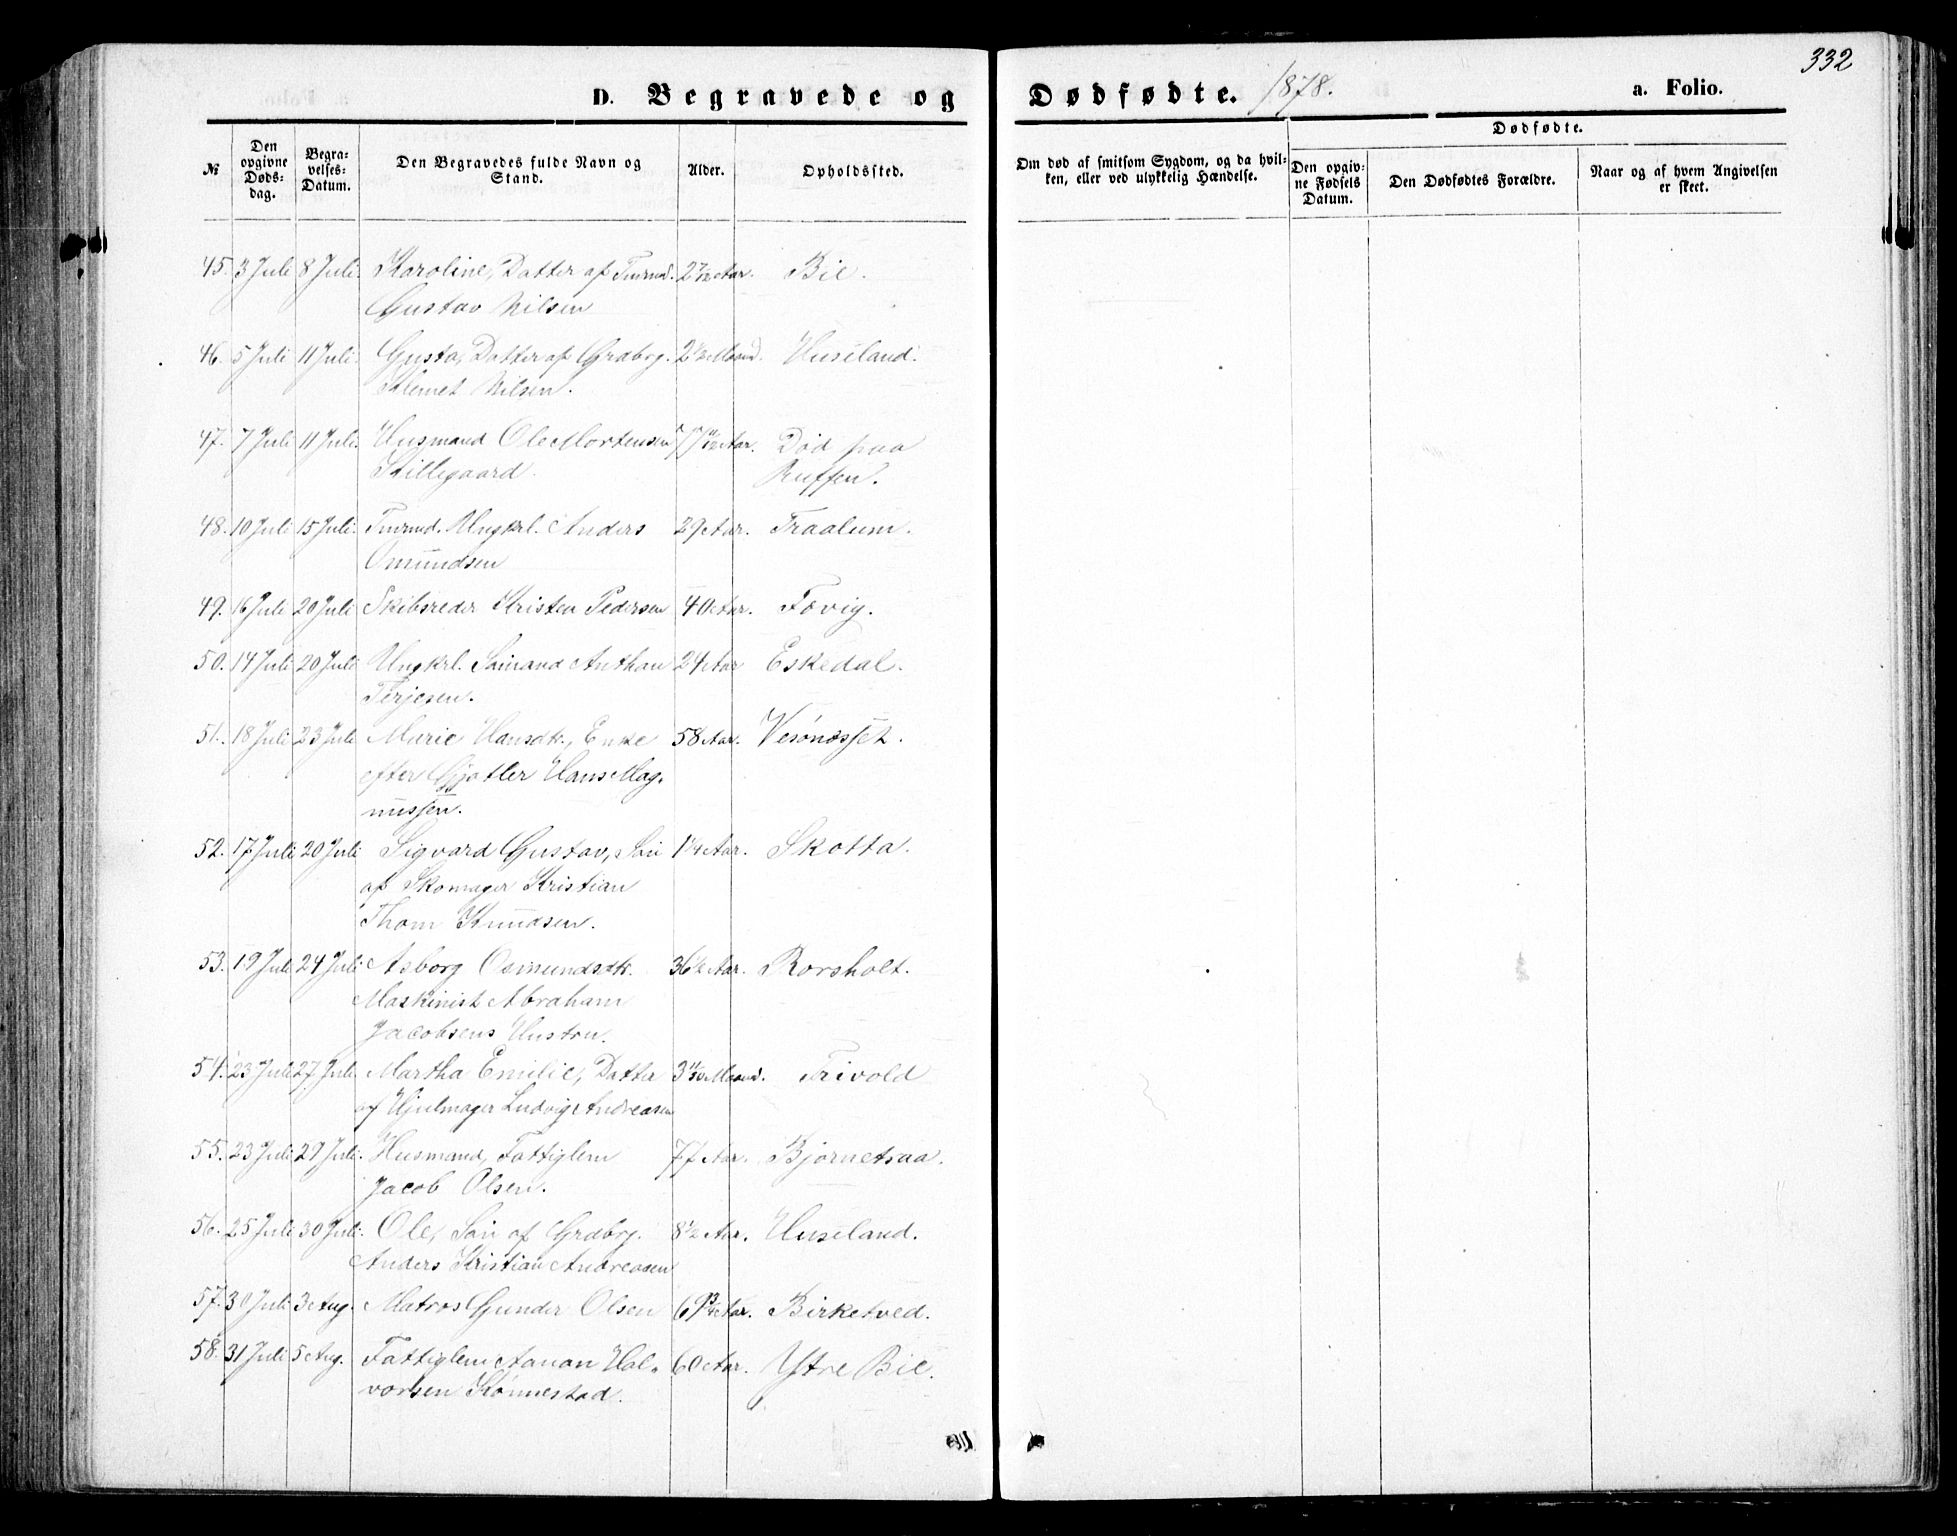 332
D. Begravede og Dødfødte. 1878. a. Folio.
№
Den opgivne Døds-dag.
Begra-velses-Datum.
Den Begravedes fulde Navn og Stand.
Alder.
Opholdssted.
Om død af smitsom Sygdom, og da hvil-
ken, eller ved ulykkelig Hændelse.
Dødfødte.
Den opgiv-
ne Fødsels
Datum.
Den Dødfødtes Forældre.
Naar og af hvem Angivelsen
er skeet.
45. 3 Juli 8 Juli. Karoline, Datter af Tmrmd. 2 7/12 Aar. Bie.
Gustav Nilsen
46. 5 Juli 11 Juli. Gusta, Datter af Grdbrg. 2 1/2 Maaned. Huseland.
Klemet Nilsen.
47. 7 Juli 11 Juli. Husmand Ole Mortensen 77 11/12 Aar. Død paa
Killegaard. Ruffen.
48. 10 Juli 15 Juli. Tmrmd. Ungkrl. Anders 29 Aar. Traalum.
Omundsen
49. 16 Juli 20 Juli Skibsreder Kristen Pedersen 40 Aar. Fevig.
50. 14 Juli 20 Juli Ungkrl. Samand Anthon 24 Aar Eskedal.
Terjesen.
51. 18 Juli 23 Juli Marie Hansdtr., Enke 58 Aar. Vesønæsset.
efter Gjøtler Hans Mag-
nussen.
52. 17 Juli 20 Juli Sigvard Gustav, Søn 1 1/4 Aar. Skotta.
af Skomager Kristian
Thom Knudsen.
53. 19 Juli 24 Juli Asborg Osmundsdtr. 36 1/2 Aar. Rorsholt.
Maskinist Abraham
Jacobsens Hustru.
54. 23 Juli 27 Juli Martha Emilie, Datter 3 Maaned. Trivold
af Hjulmager Ludvig Andreasen
55. 23 Juli 29 Juli. Husmand, Fattiglem 77 Aar. Bjørnetraa.
Jacob Olsen.
56. 25 Juli 30 Juli. Ole, Søn af Grdbrg. 8 1/2 Aar. Huseland.
Anders Kristian Andreasen
57. 30 Juli 3 Aug. Matros Gunder Olsen 69 3/4 Aar. Birketved.
58. 31 Juli 5 Aug. Fattiglem Aanon Hal- 60 Aar. Ytre Bie.
vorsen Rønnestad.